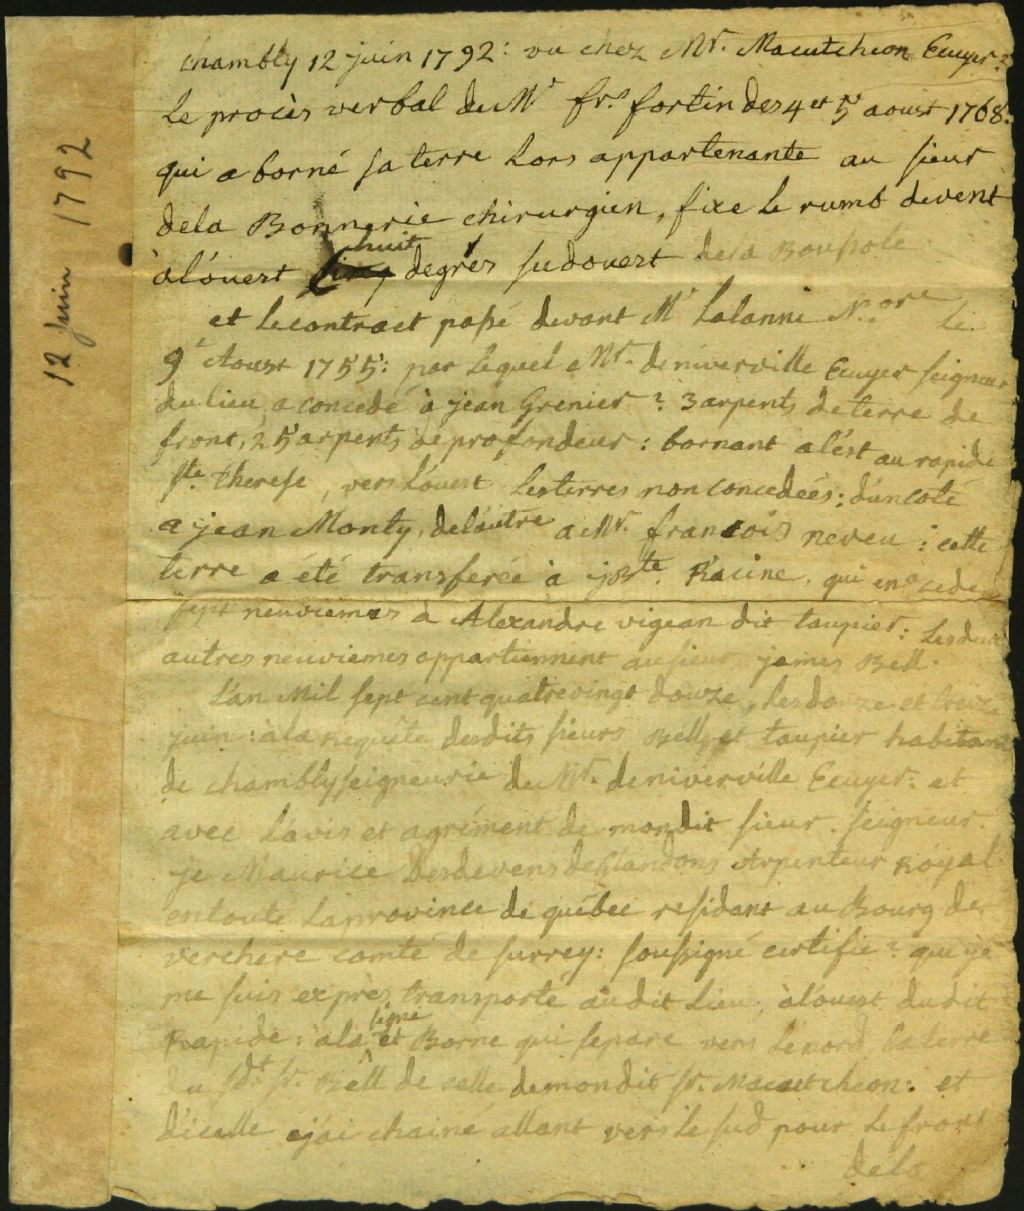 12 Juin 1792
chambly 12 juin 1792: vu chez Mr. Macutcheon Ecuyer.
le procès verbal de Mr frs. fortin des 4 et 5 aoust 1768.
qui a borné sa terre Lors appartenante au sieur
dela Bonnerie chirurgien, fixe le rumb de vent
à l'ouest cinq huit degrés sudouest dela Boussole
et le contract passé devant Mr Lalanne N.ore le
9e Aoust 1755: par lequel Mr. de niverville Ecuyer seigneur
du lieu, a concedé à jean Grenier 3 arpents de terre de
front, 25 arpents de profondeur: bornant a l'est au rapide
ste. therese, vers l'ouest les terres non concedeés; d'un coté
a jean Monty, de l'autre a Mr. francois neveu: cette
terre a été transferée à jBte. Racine, qui en a cede
sept neuviemes à Alexandre vigean dit taupier: les deux
autres neuviemes appartiennent au sieur james Bell.
L'an Mil sept cent quatrevingt douze, les douze et treize
juin: à la Requête desdits sieurs Bell, et taupier habitans
de chambly seigneurie de Mr. de niverville Ecuyer: et
avec l'avis et agrément de mondit sieur seigneur.
je Maurice Desdevens de Glandons Arpenteur Royal
en toute la province de québec residant au Bourg de
verchere comté de surrey: soussigné certifie que je
me suis exprès transporté audit lieu, à l'ouest dudit
Rapide: à la ligne et Borne qui separe vers le nord la terre
du sdt. sr. Bell de celle de mondit sr. Macutcheon: et
d'icelle j'ai chainé allant vers le sud pour le front
dela